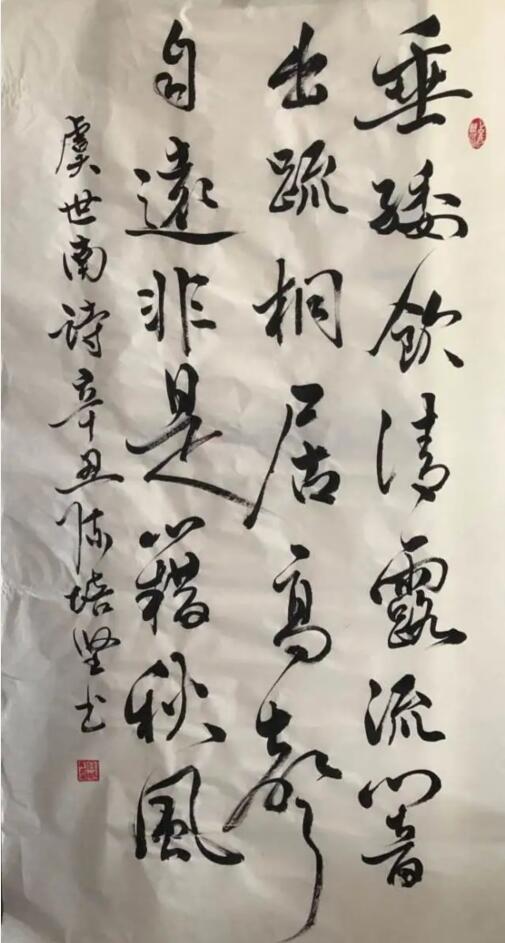 垂緌飲清露流響
出疏桐居高聲
自遠非是籍秋風
虞世南詩辛丑陈培坚书